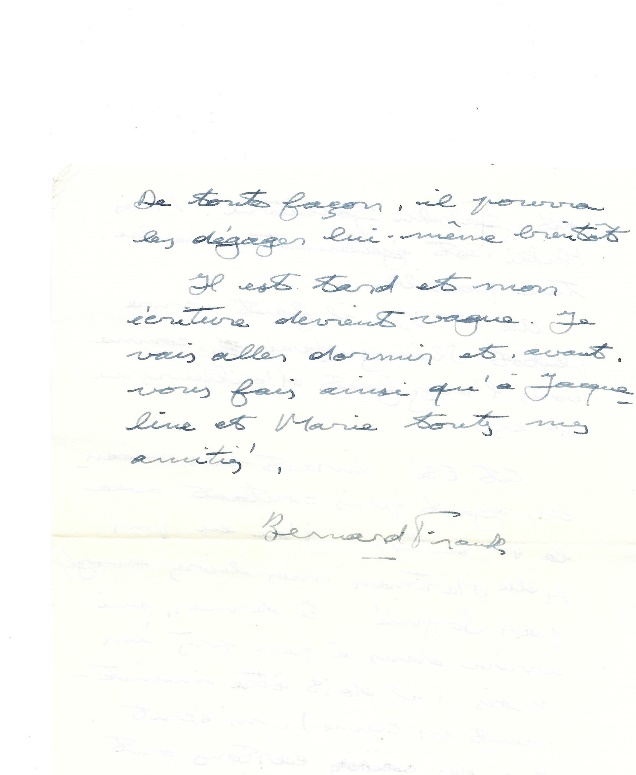 De toute façon, il pourra
les dégager lui-même bientôt
Il est tard et mon
écriture devient vague. Je
vais aller dormir et, avant,
vous fais ainsi qu'à Jacque
line et Marie toutes mes
amitiés,
Bernard Frank